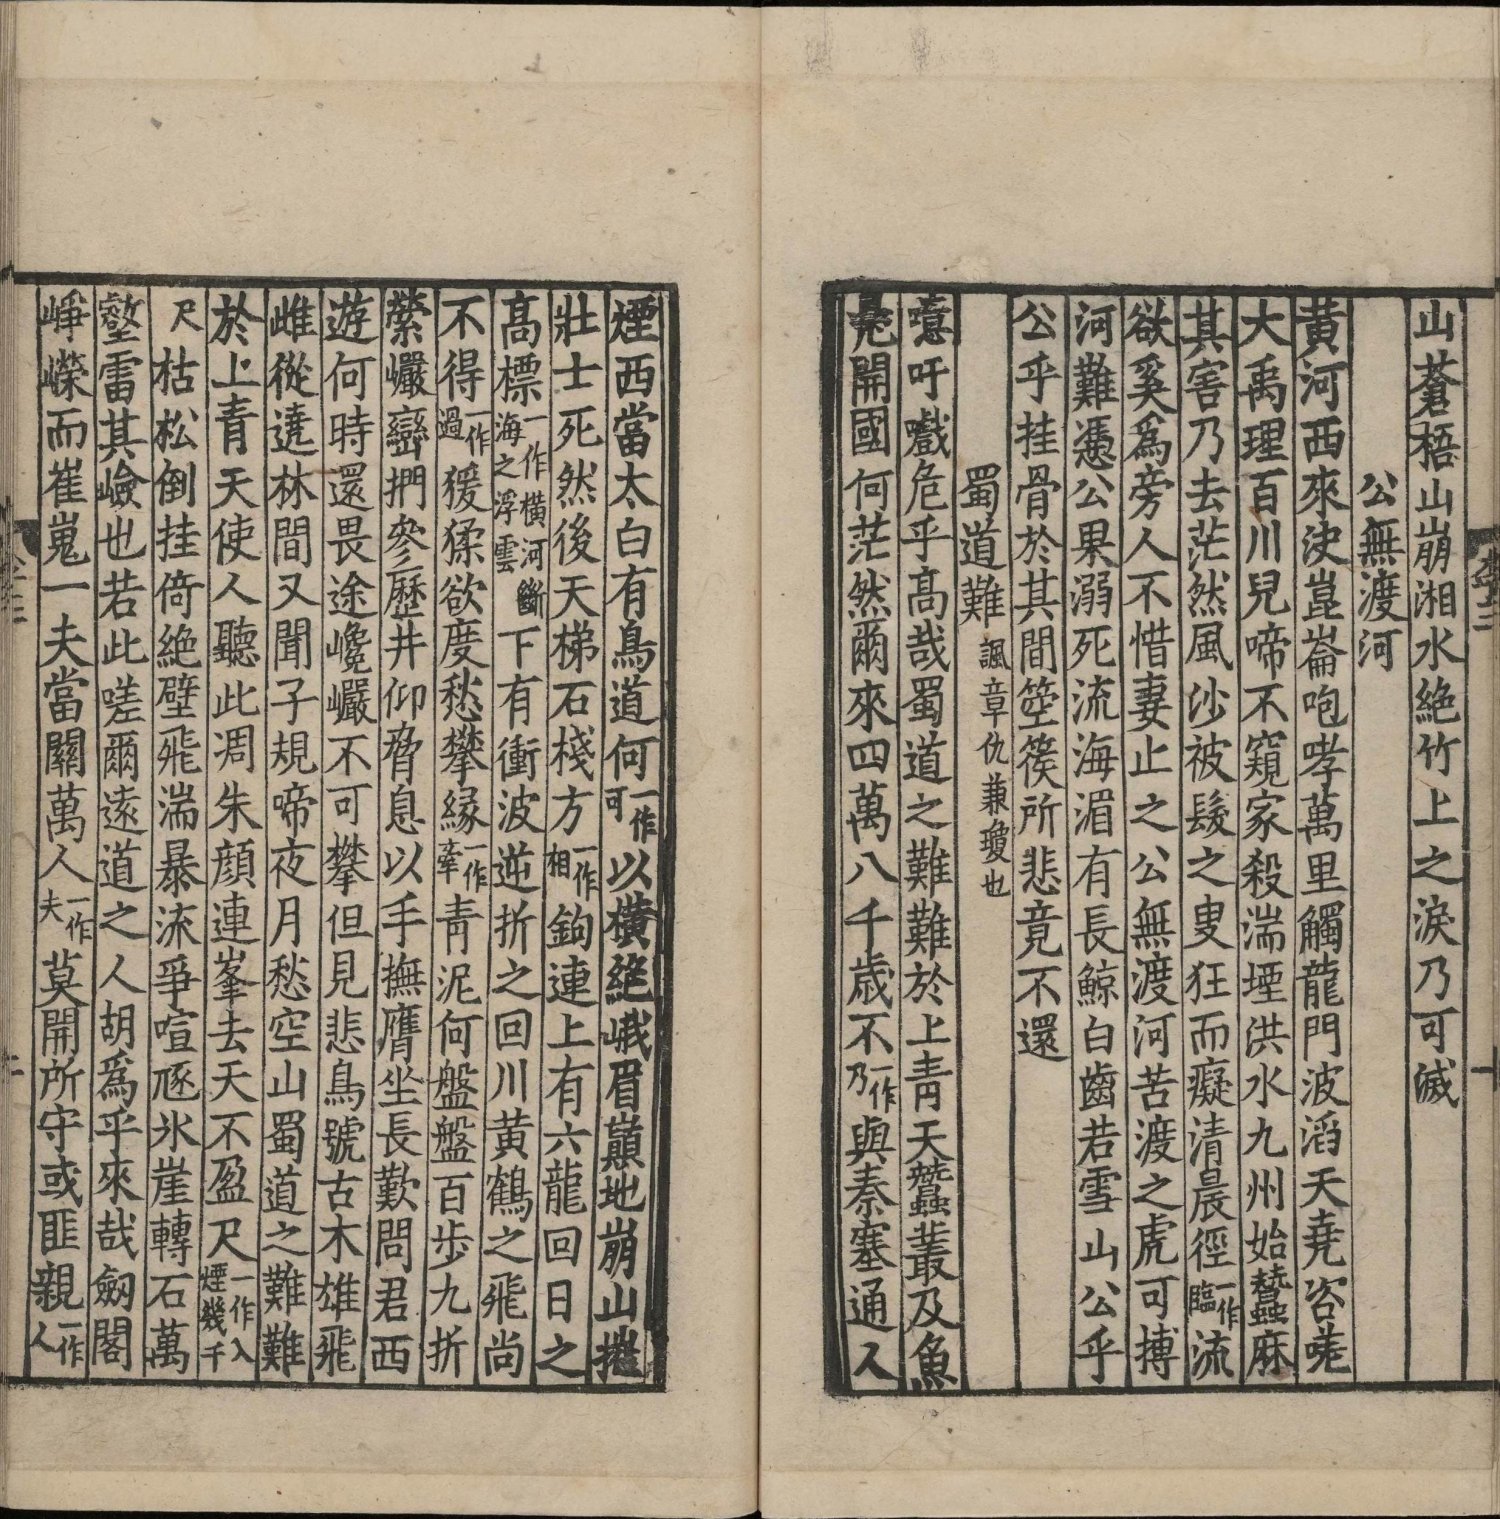 山蒼梧山崩湘水絶竹上之淚乃可滅
公無渡河
黄河西來決崑崙咆哮萬里觸龍門波滔天堯咨嗟
大禹理百川兒啼不窺家殺湍堙洪水九州始蠶麻
其害乃去茫然風沙被髮之叟狂而癡清晨徑一作臨流
欲奚爲旁人不惜妻止之公無渡河苦渡之虎可搏
河難憑公果溺死流海湄有長鯨白齒若雪山公乎
公乎挂骨於其間箜篌所悲竟不還
蜀道難諷章仇兼瓊也
噫吁嚱危乎高哉蜀道之難難於上青天蠶叢及魚
鳧開國何茫然爾來四萬八千歲不一作乃與秦塞通人
煙西當太白有鳥道何一作可以横絶峨眉巔地崩山摧
壯士死然後天梯石棧方一作相鉤連上有六龍回日之
高標一作横河斷海之浮雲下有衝波逆折之回川黄鶴之飛尚
不得一作過猨猱欲度愁攀緣一作牽青泥何盤盤百步九折
縈巖巒捫參歷井仰脅息以手撫膺坐長歎問君西
遊何時還畏途巉巖不可攀但見悲鳥號古木雄飛
雌從遶林間又聞子規啼夜月愁空山蜀道之難難
於上青天使人聽此凋朱顔連峯去天不盈尺一作入煙幾千
尺枯松倒挂倚絶壁飛湍暴流爭喧豗氷崖轉石萬
壑雷其嶮也若此嗟爾遠道之人胡爲乎來哉劒閣
崢嶸而崔嵬一夫當關萬人一作夫莫開所守或匪親一作人